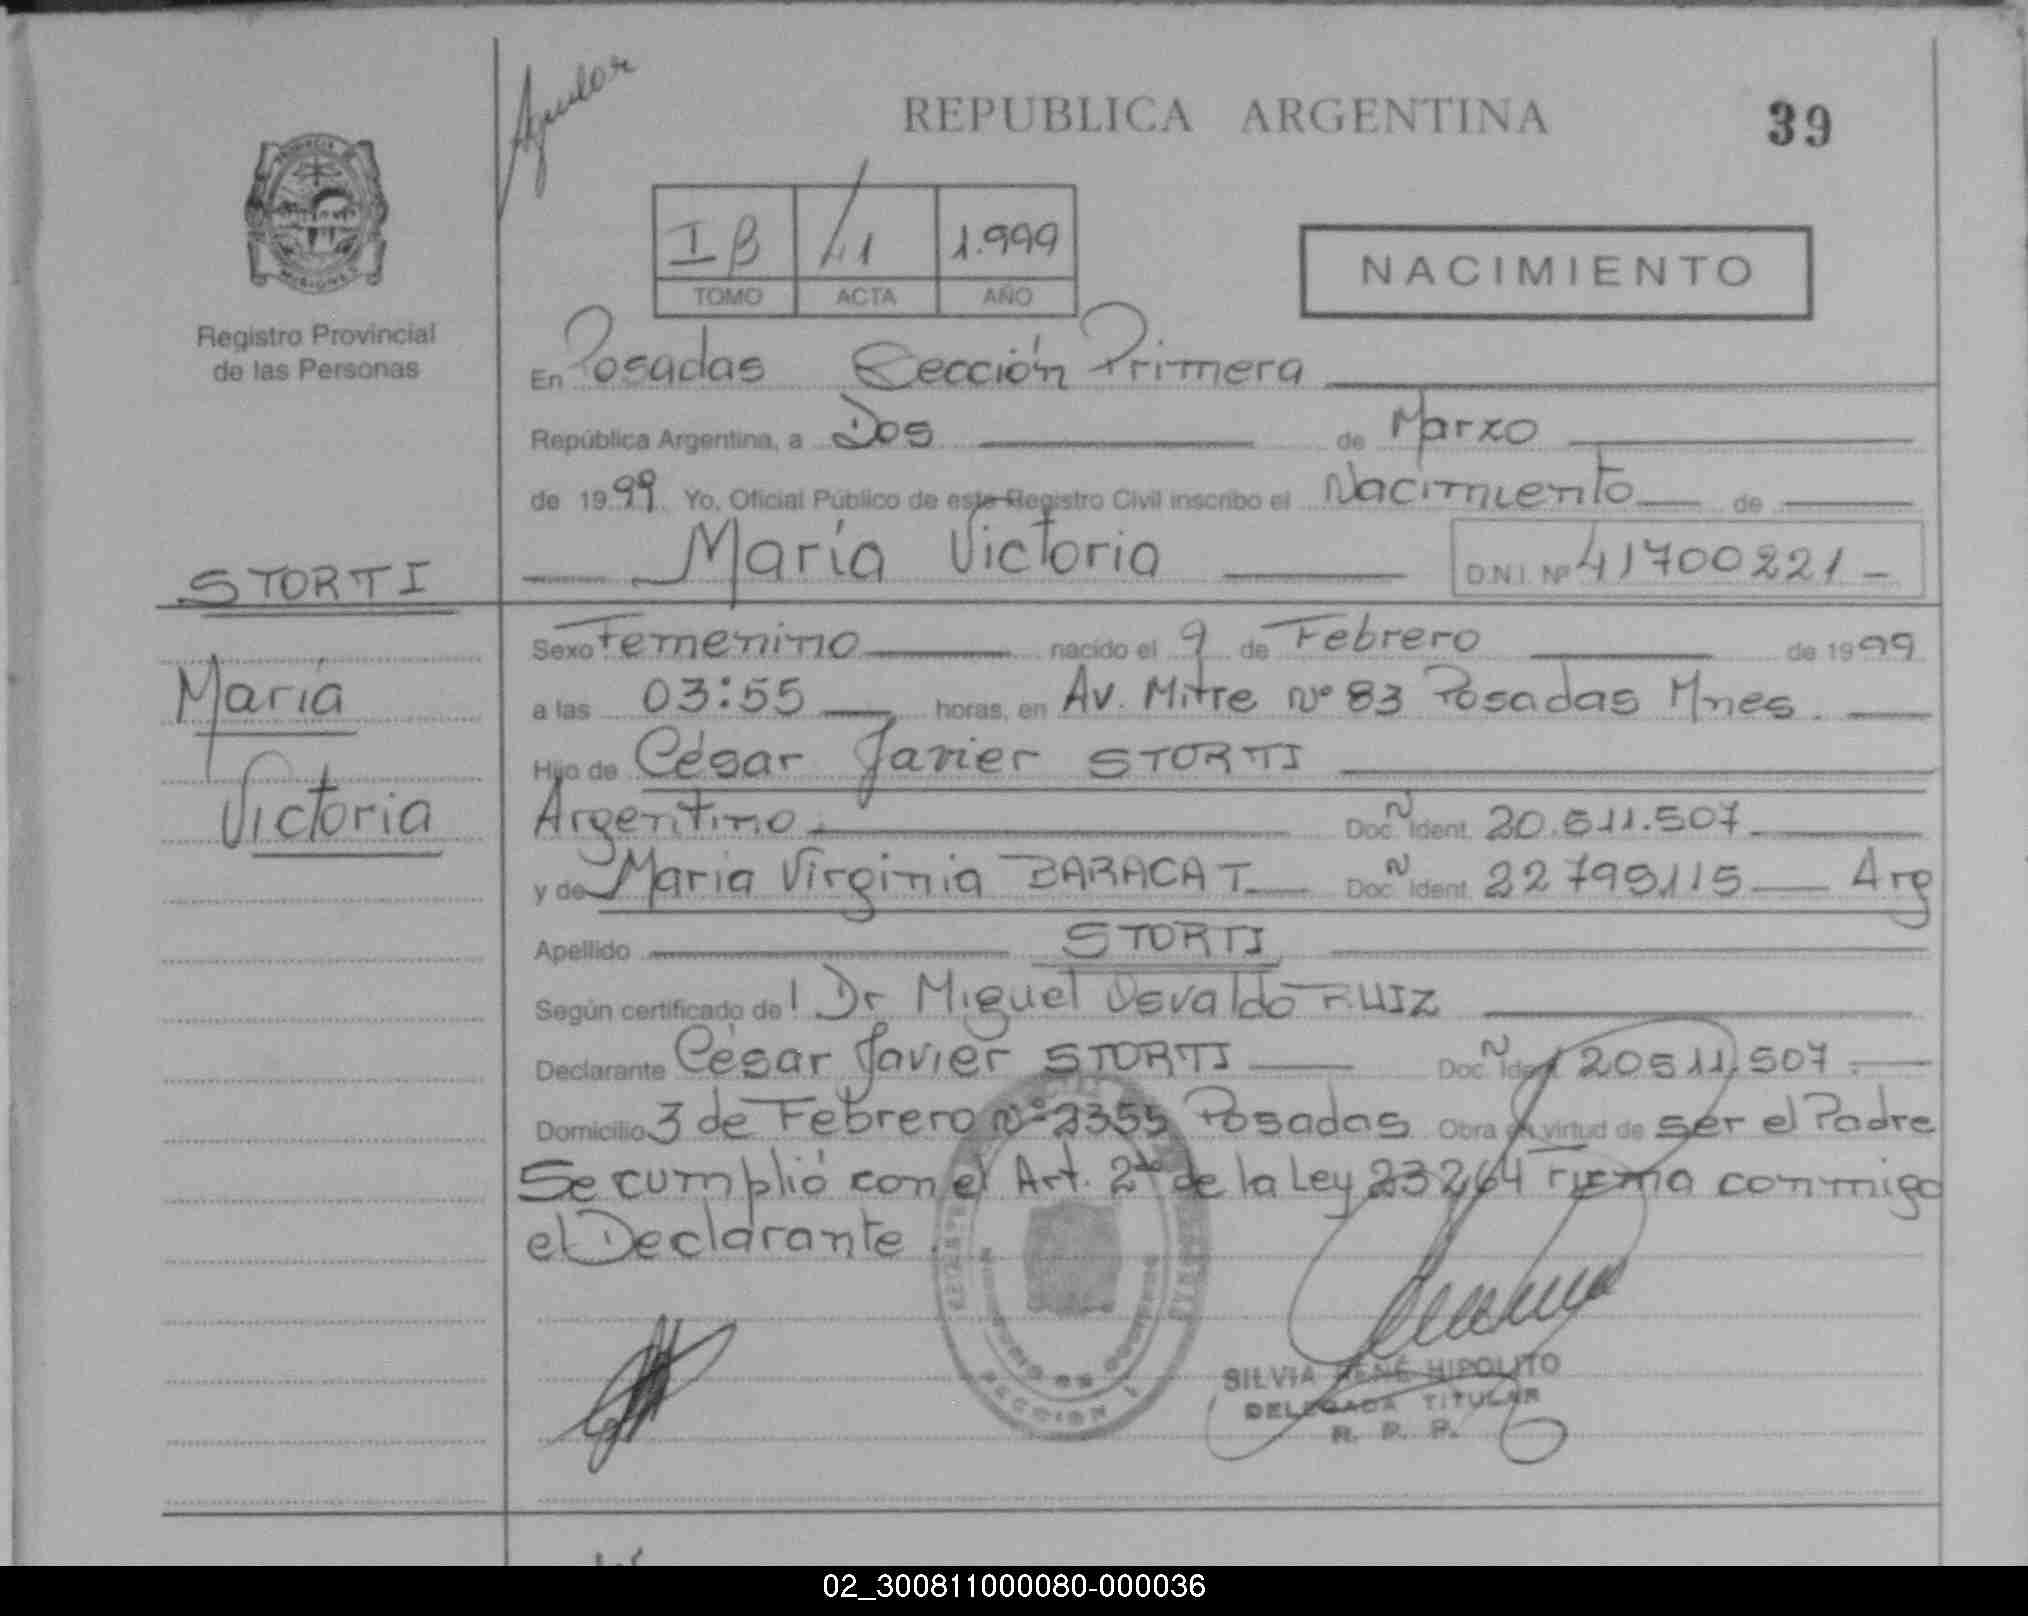 Aguilar
REPUBLICA ARGENTINA
39
PROVINCIA DE
MISIONES
Registro Provincial
de las Personas
I B
41
1.999
TOMO
ACTA
AÑO
NACIMIENTO
En Posadas Sección Primera
República Argentina, a Dos de Marzo
de 1999 Yo, Oficial Público de este Registro Civil inscribo el Nacimiento de
María Victoria D.N.I. Nº 41700221
STORTI
María
Victoria
Sexo Femenino nacido el 9 de Febrero de 1999
a las 03:55 horas, en Av. Mitre Nº 83 Posadas Mnes.
Hijo de César Javier STORTI
Argentino Doc. Ident. 20.511.507
y de María Virginia BARACAT Doc. Ident. 22795115 Arg
Apellido STORTI
Según certificado del Dr Miguel Osvaldo RUIZ
Declarante César Javier STORTI Doc. Ident. 20511.507
Domicilio 3 de Febrero Nº 2355 Posadas Obra en virtud de ser el Padre
Se cumplió con el Art. 2º de la Ley 23264 Firma conmigo
el Declarante
SECCION 1
SILVIA RENÉ HIPOLITO
DELEGADA TITULAR
R. P. P.
02_300811000080-000036